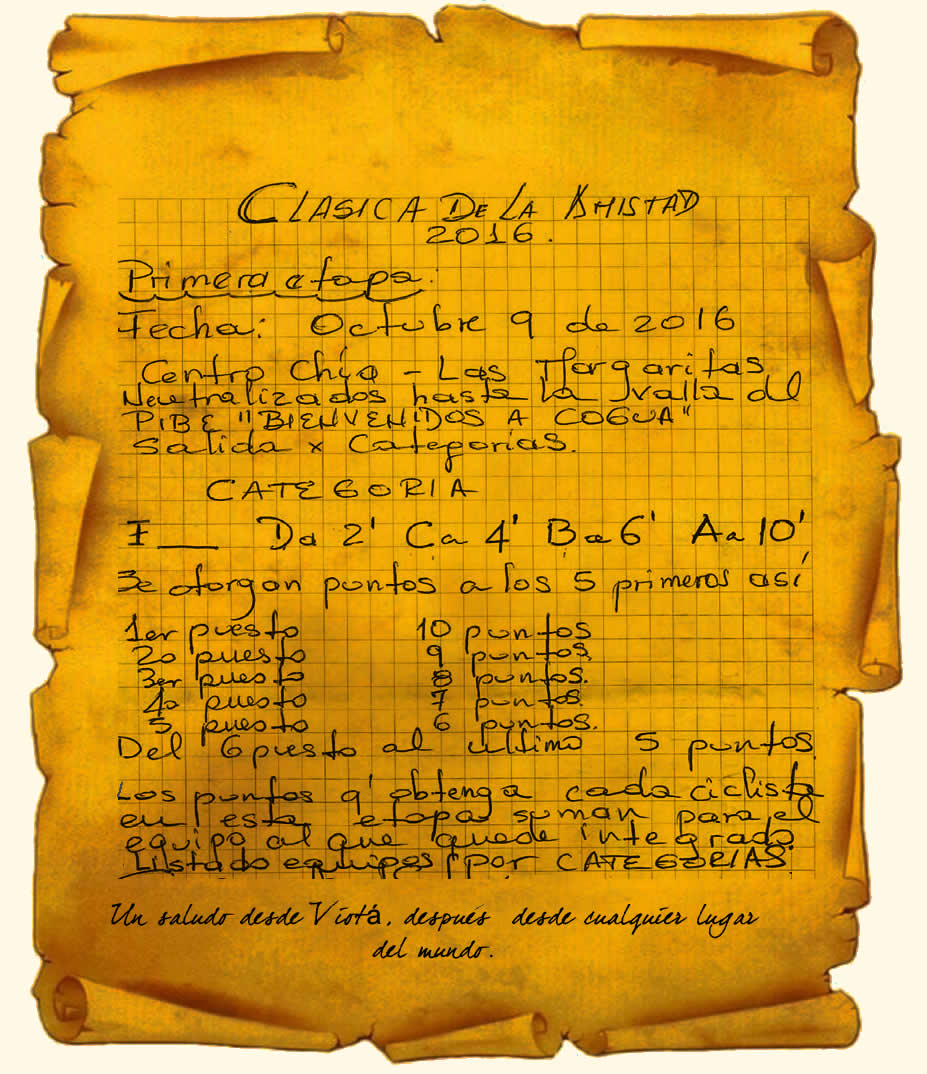 CLASICA DE LA AMISTAD
2016.
Primera etapa:
Fecha: Octubre 9 de 2016
Centro Chía - Las Margaritas
Neutralizados hasta la valla del
PIBE "BIENVENIDOS A COGUA"
Salida x Categorías.
CATEGORIA
I___ D a 2' C a 4' B a 6' A a 10'
Se otorgan puntos a los 5 primeros así
1er puesto 10 puntos
2o puesto 9 puntos.
3er puesto 8 puntos.
4o puesto 7 puntos.
5 puesto 6 puntos.
Del 6 puesto al ultimo 5 puntos.
Los puntos q' obtenga cada ciclista
en esta etapa suman para el
equipo al que quede integrado.
Listado equipos por CATEGORIAS.
Un saludo desde Viotá, después desde cualquier lugar
del mundo.